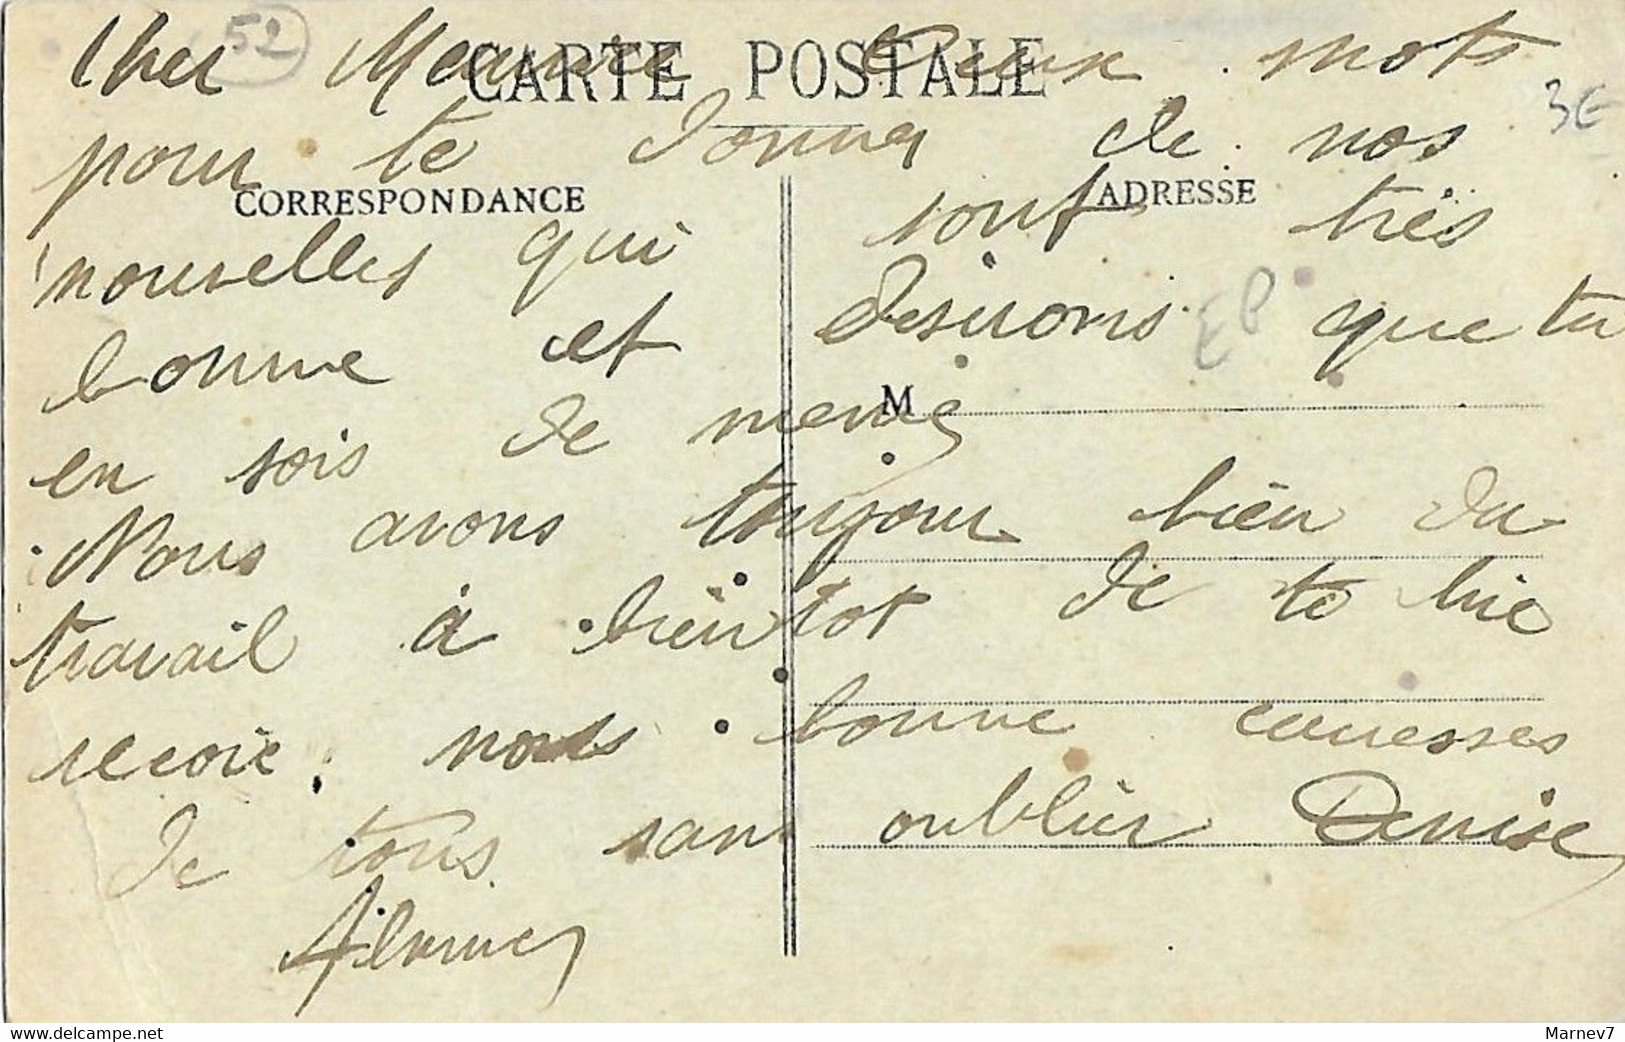 Cher Maurice deux mots
CARTE POSTALE
52
3€
pour te donner de nos
CORRESPONDANCE
ADRESSE
nouvelles qui sont très
bonne et desirons que tu
EP
M
en sois de meme
Nous avons toujour bien du
travail à bientot de te lire
recoie nous bonne caresses
de tous sans oublier Denise
www.delcampe.net
Marnev7